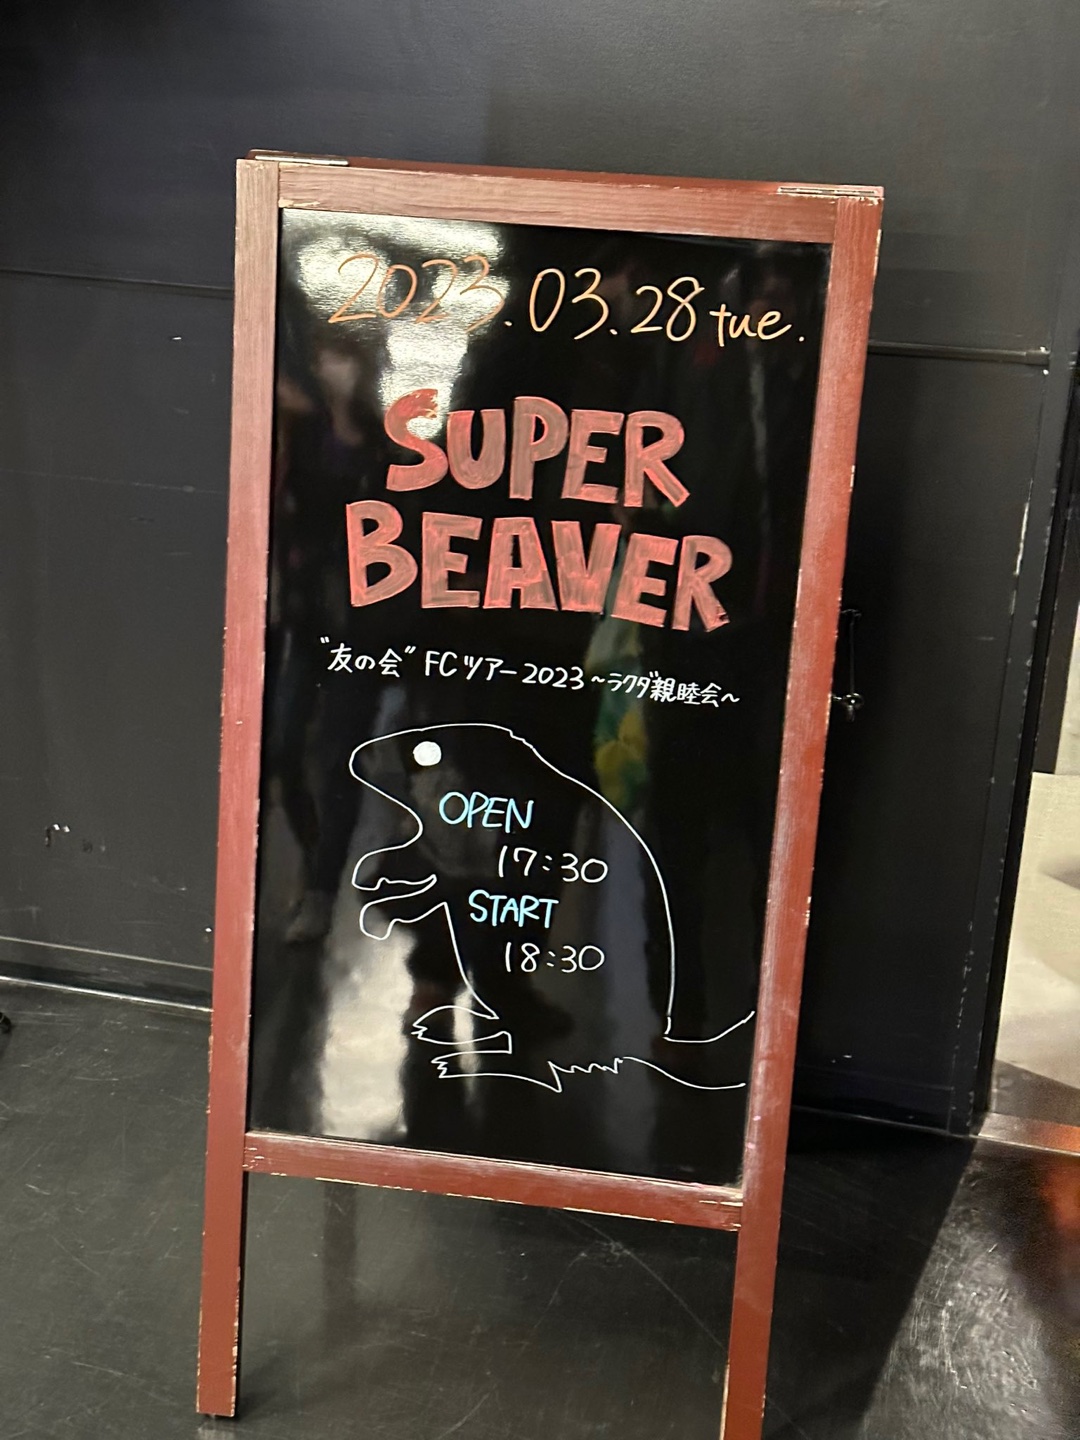 2023.03.28 tue.
SUPER
BEAVER
"友の会" FCツアー2023 ~ラクダ親睦会~
OPEN
17:30
START
18:30